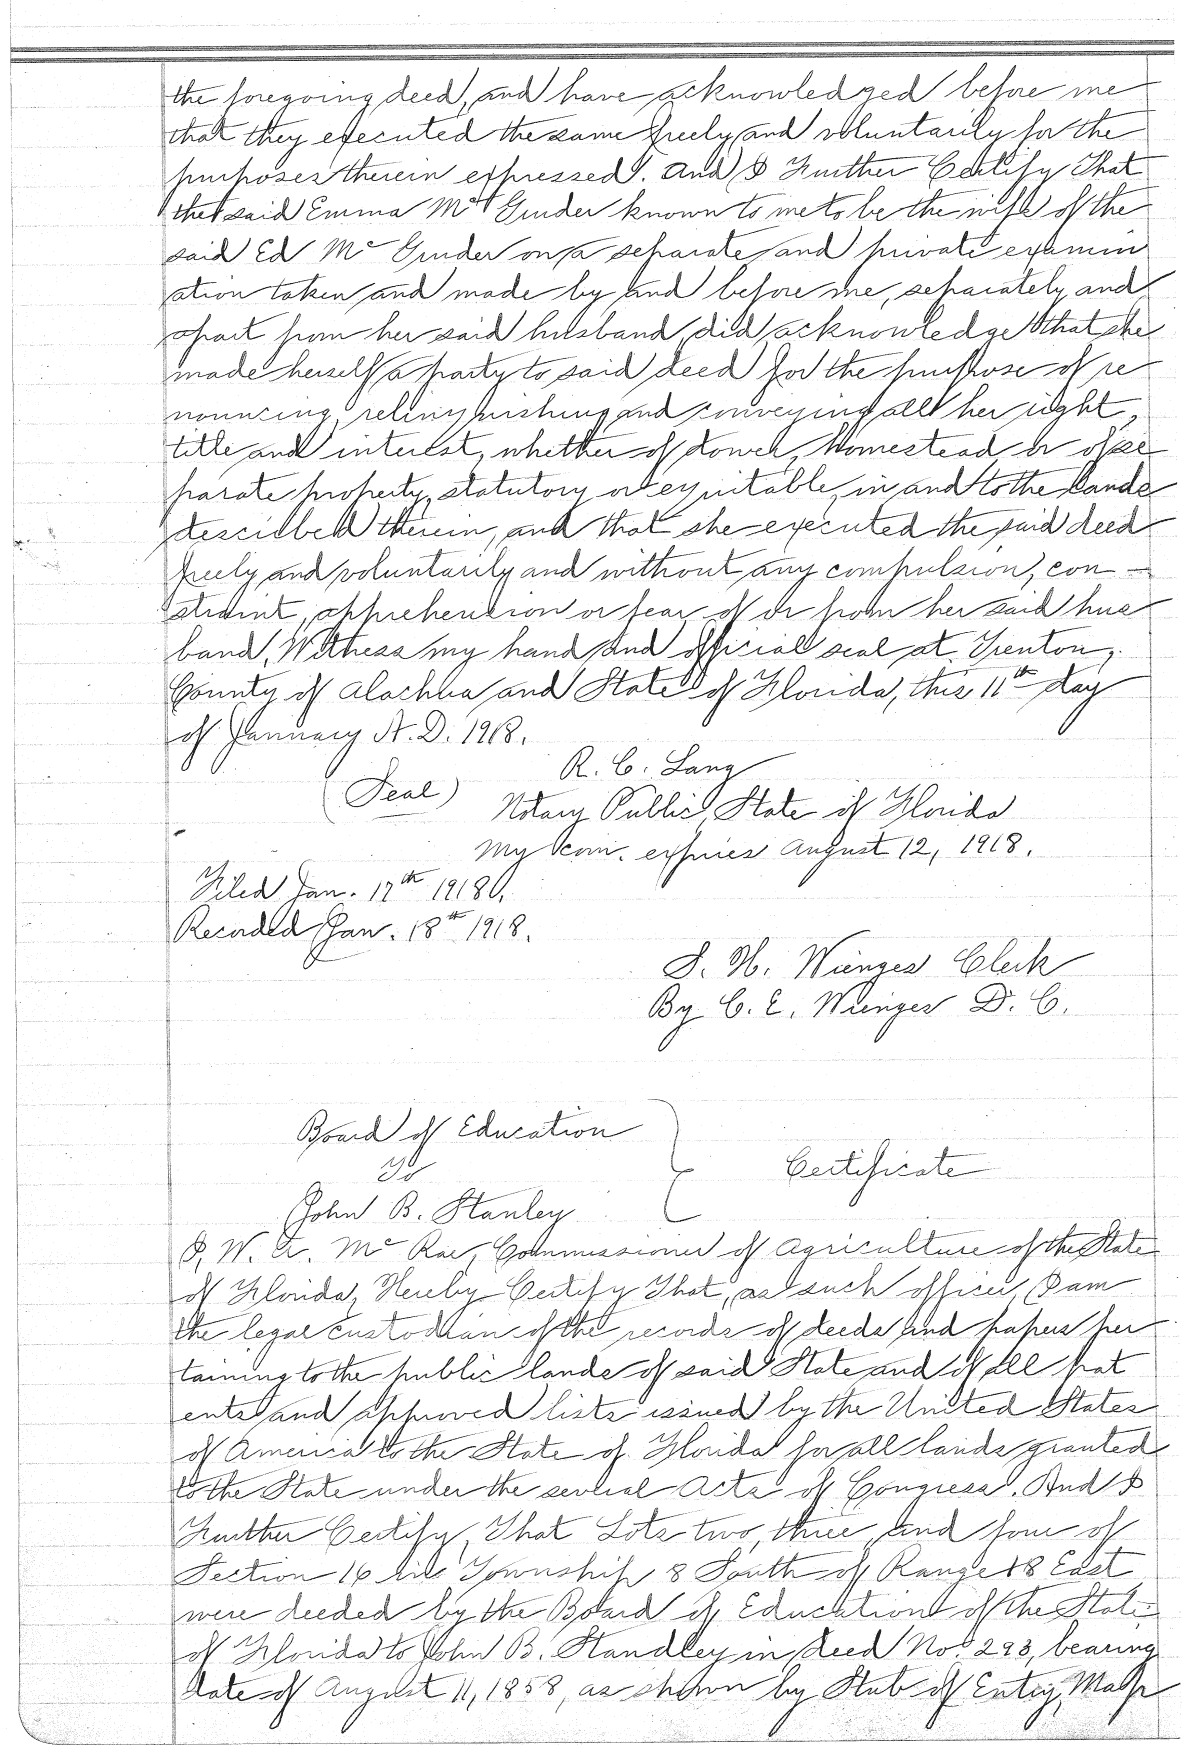 the foregoing deed, and have acknowledged before me
that they executed the same freely and voluntarily for the
purposes therein expressed. And I Further Certify That
the said Emma Mc Ginder known to me to be the wife of the
said Ed Mc Ginder on a separate and private examin
ation taken and made by and before me, separately and
apart from her said husband, did acknowledge that she
made herself a party to said deed for the purpose of re
nouncing, relinquishing and conveying all her right,
title and interest, whether of dower, Homestead or of se
parate property, statutory or equitable, in and to the lands
described therein, and that she executed the said deed
freely and voluntarily and without any compulsion, con -
straint, apprehension or fear of or from her said hus
band, Witness my hand and official seal at Trenton,
County of Alachua and State of Florida, this 11th day
of January A. D. 1918.
R. C. Lang
(Seal)
Notary Public, State of Florida
My com. expires August 12, 1918.
Filed Jan. 17th 1918.
Recorded Jan. 18th 1918.
S. H. Wienges Clerk
By C. E. Wienges D. C.
Board of Education
To
Certificate
John B. Stanley
I, W. A. Mc Rae, Commissioner of Agriculture of the State
of Florida, Hereby Certify That, as such officer, I am
the legal custodian of the records of deeds and papers per
taining to the public lands of said State and of all pat
ents and approved lists issued by the United States
of America to the State of Florida for all lands granted
to the State under the several Acts of Congress. And I
Further Certify, That Lots two, three and four of
Section 16 in Township 8 South of Range 18 East
were deeded by the Board of Education of the State
of Florida to John B. Standley in deed No. 293, bearing
date of August 11, 1858, as shown by Stub of Entry, Map